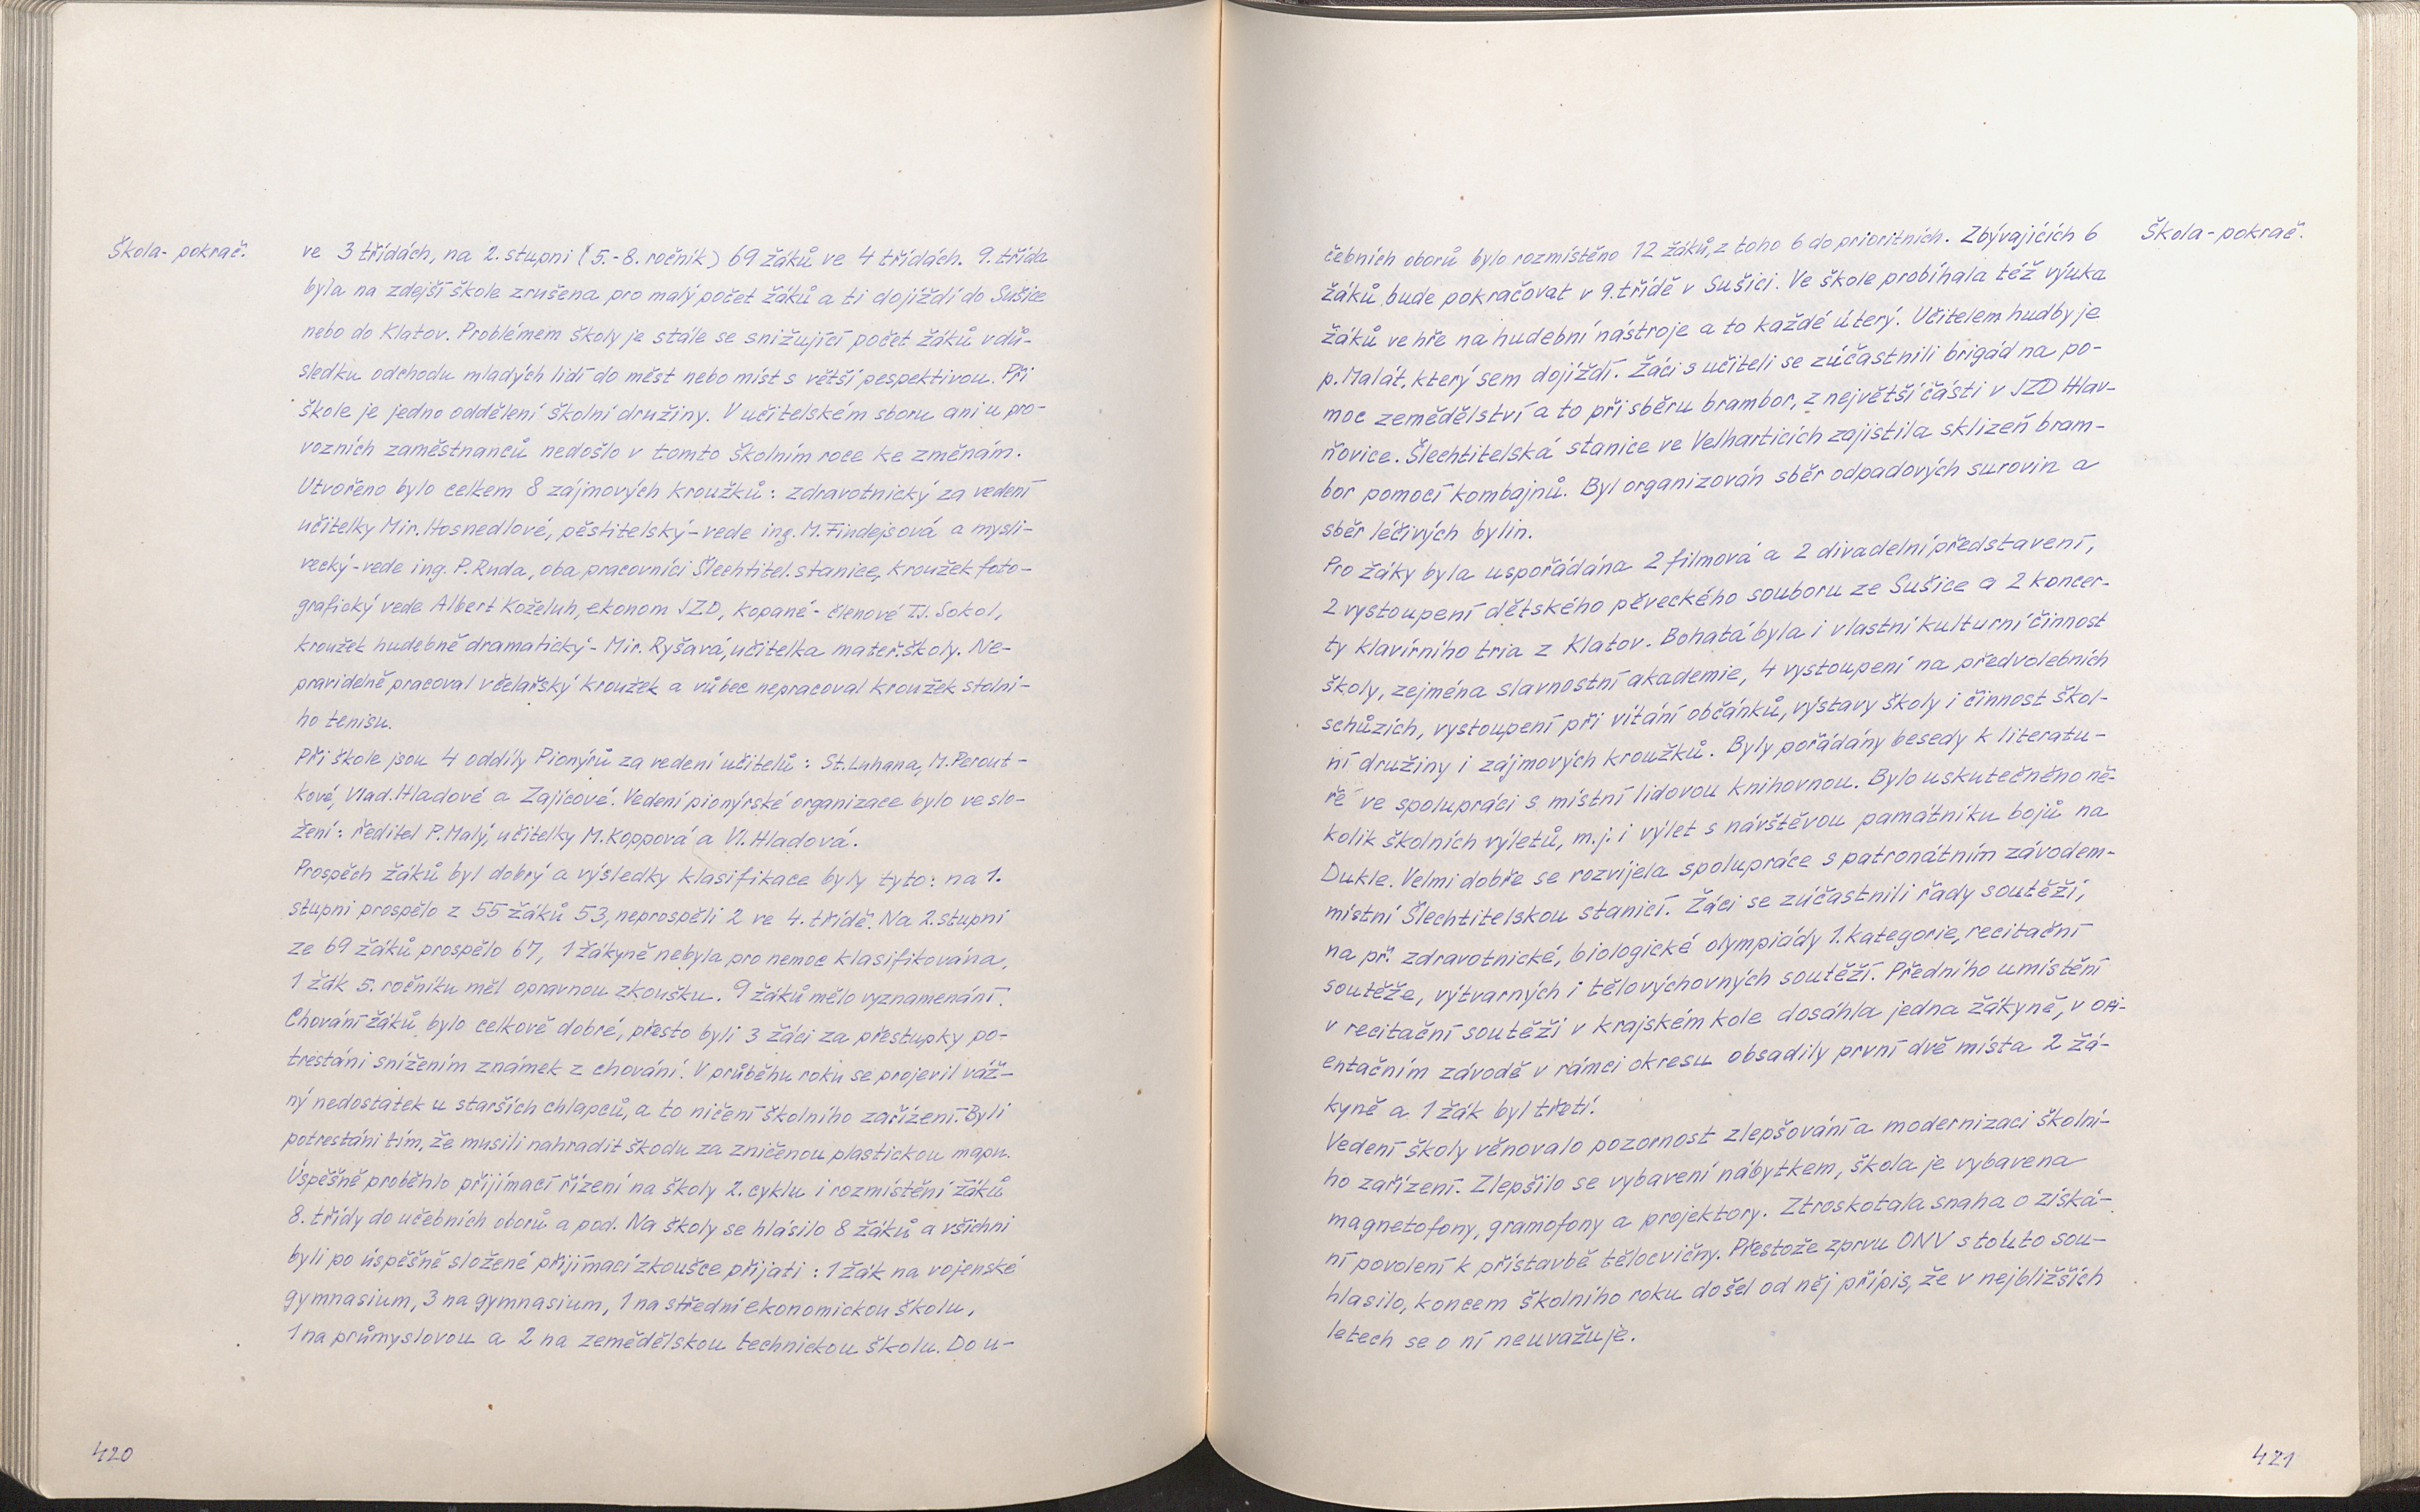 Škola- pokrač.
ve 3 třídách, na 2. stupni (5.-8. ročník) 69 žáků ve 4 třídách. 9. třída
byla na zdejší škole zrušena pro malý počet žáků a ti dojíždí do Sušice
nebo do Klatov. Problémem školy je stále se snižující počet žáků vdů-
sledku odchodu mladých lidí do měst nebo míst s větší pespektivou. Při
škole je jedno oddělení školní družiny. V učitelském sboru ani u pro-
vozních zaměstnanců nedošlo v tomto školním roce ke změnám.
Utvořeno bylo celkem 8 zájmových kroužků: zdravotnický za vedení
učitelky Mir. Hosnedlové, pěstitelský-vede ing. M. Findejsová a mysli-
vecký-vede ing. P. Ruda, oba pracovníci Šlechtitel. stanice, kroužek foto-
grafický vede Albert Koželuh, ekonom JZD, kopané- členové TJ. Sokol,
kroužek hudebně dramatický- Mir. Ryšavá, učitelka mateř. školy. Ne-
pravidelně pracoval včelařský kroužek a vůbec nepracoval kroužek stolní-
ho tenisu.
Při škole jsou 4 oddíly Pionýrů za vedení učitelů: St. Luhana, M. Perout-
kové, Vlad. Hladové a Zajícové. Vedení pionýrské organizace bylo ve slo-
žení: ředitel P. Malý, učitelky M. Koppová a Vl. Hladová.
Prospěch žáků byl dobrý a výsledky klasifikace byly tyto: na 1.
stupni prospělo z 55 žáků 53, neprospěli 2 ve 4. třídě. Na 2. stupni
ze 69 žáků prospělo 67, 1 žákyně nebyla pro nemoc klasifikována,
1 žák 5. ročníku měl opravnou zkoušku. 9 žáků mělo vyznamenání.
Chování žáků bylo celkově dobré, přesto byli 3 žáci za přestupky po-
trestáni snížením známek z chování. V průběhu roku se projevil váž-
ný nedostatek u starších chlapců, a to ničení školního zařízení. Byli
potrestáni tím, že musili nahradit škodu za zničenou plastickou mapu.
Úspěšně proběhlo přijímací řízení na školy 2. cyklu i rozmístění žáků
8. třídy do učebních oborů a pod. Na školy se hlásilo 8 žáků a všichni
byli po úspěšně složené přijímací zkoušce přijati: 1 žák na vojenské
gymnasium, 3 na gymnasium, 1 na střední ekonomickou školu,
1 na průmyslovou a 2 na zemědělskou technickou školu. Do u-
420
Škola-pokrač.
čebních oborů bylo rozmístěno 12 žáků, z toho 6 do prioritních. Zbývajících 6
žáků bude pokračovat v 9. třídě v Sušici. Ve škole probíhala též výuka
žáků ve hře na hudební nástroje a to každé úterý. Učitelem hudby je
p. Malát, který sem dojíždí. Žáci s učiteli se zúčastnili brigád na po-
moc zemědělství a to při sběru brambor, z největší části v JZD Hlav-
ňovice. Šlechtitelská stanice ve Velharticích zajistila sklizeň bram-
bor pomocí kombajnů. Byl organizován sběr odpadových surovin a
sběr léčivých bylin.
Pro žáky byla uspořádána 2 filmová a 2 divadelní představení,
2 vystoupení dětského pěveckého souboru ze Sušice a 2 koncer-
ty klavírního tria z Klatov. Bohatá byla i vlastní kulturní činnost
školy, zejména slavnostní akademie, 4 vystoupení na předvolebních
schůzích, vystoupení při vítání občánků, výstavy školy i činnost škol-
ní družiny i zájmových kroužků. Byly pořádány besedy k literatu-
ře ve spolupráci s místní lidovou knihovnou. Bylo uskutečněno ně-
kolik školních výletů, m.j. i výlet s návštěvou památníku bojů na
Dukle. Velmi dobře se rozvíjela spolupráce s patronátním závodem-
místní Šlechtitelskou stanicí. Žáci se zúčastnili řady soutěží,
na př. zdravotnické, biologické olympiády 1. kategorie, recitační
soutěže, výtvarných i tělovýchovných soutěží. Předního umístění
v recitační soutěži v krajském kole dosáhla jedna žákyně, v ori-
entačním závodě v rámci okresu obsadily první dvě místa 2 žá-
kyně a 1 žák byl třetí.
Vedení školy věnovalo pozornost zlepšování a modernizaci školní-
ho zařízení. Zlepšilo se vybavení nábytkem, škola je vybavena
magnetofony, gramofony a projektory. Ztroskotala snaha o získá-
ní povolení k přístavbě tělocvičny. Přestože zprvu ONV s touto sou-
hlasilo, koncem školního roku došel od něj přípis, že v nejbližších
letech se o ní neuvažuje.
421